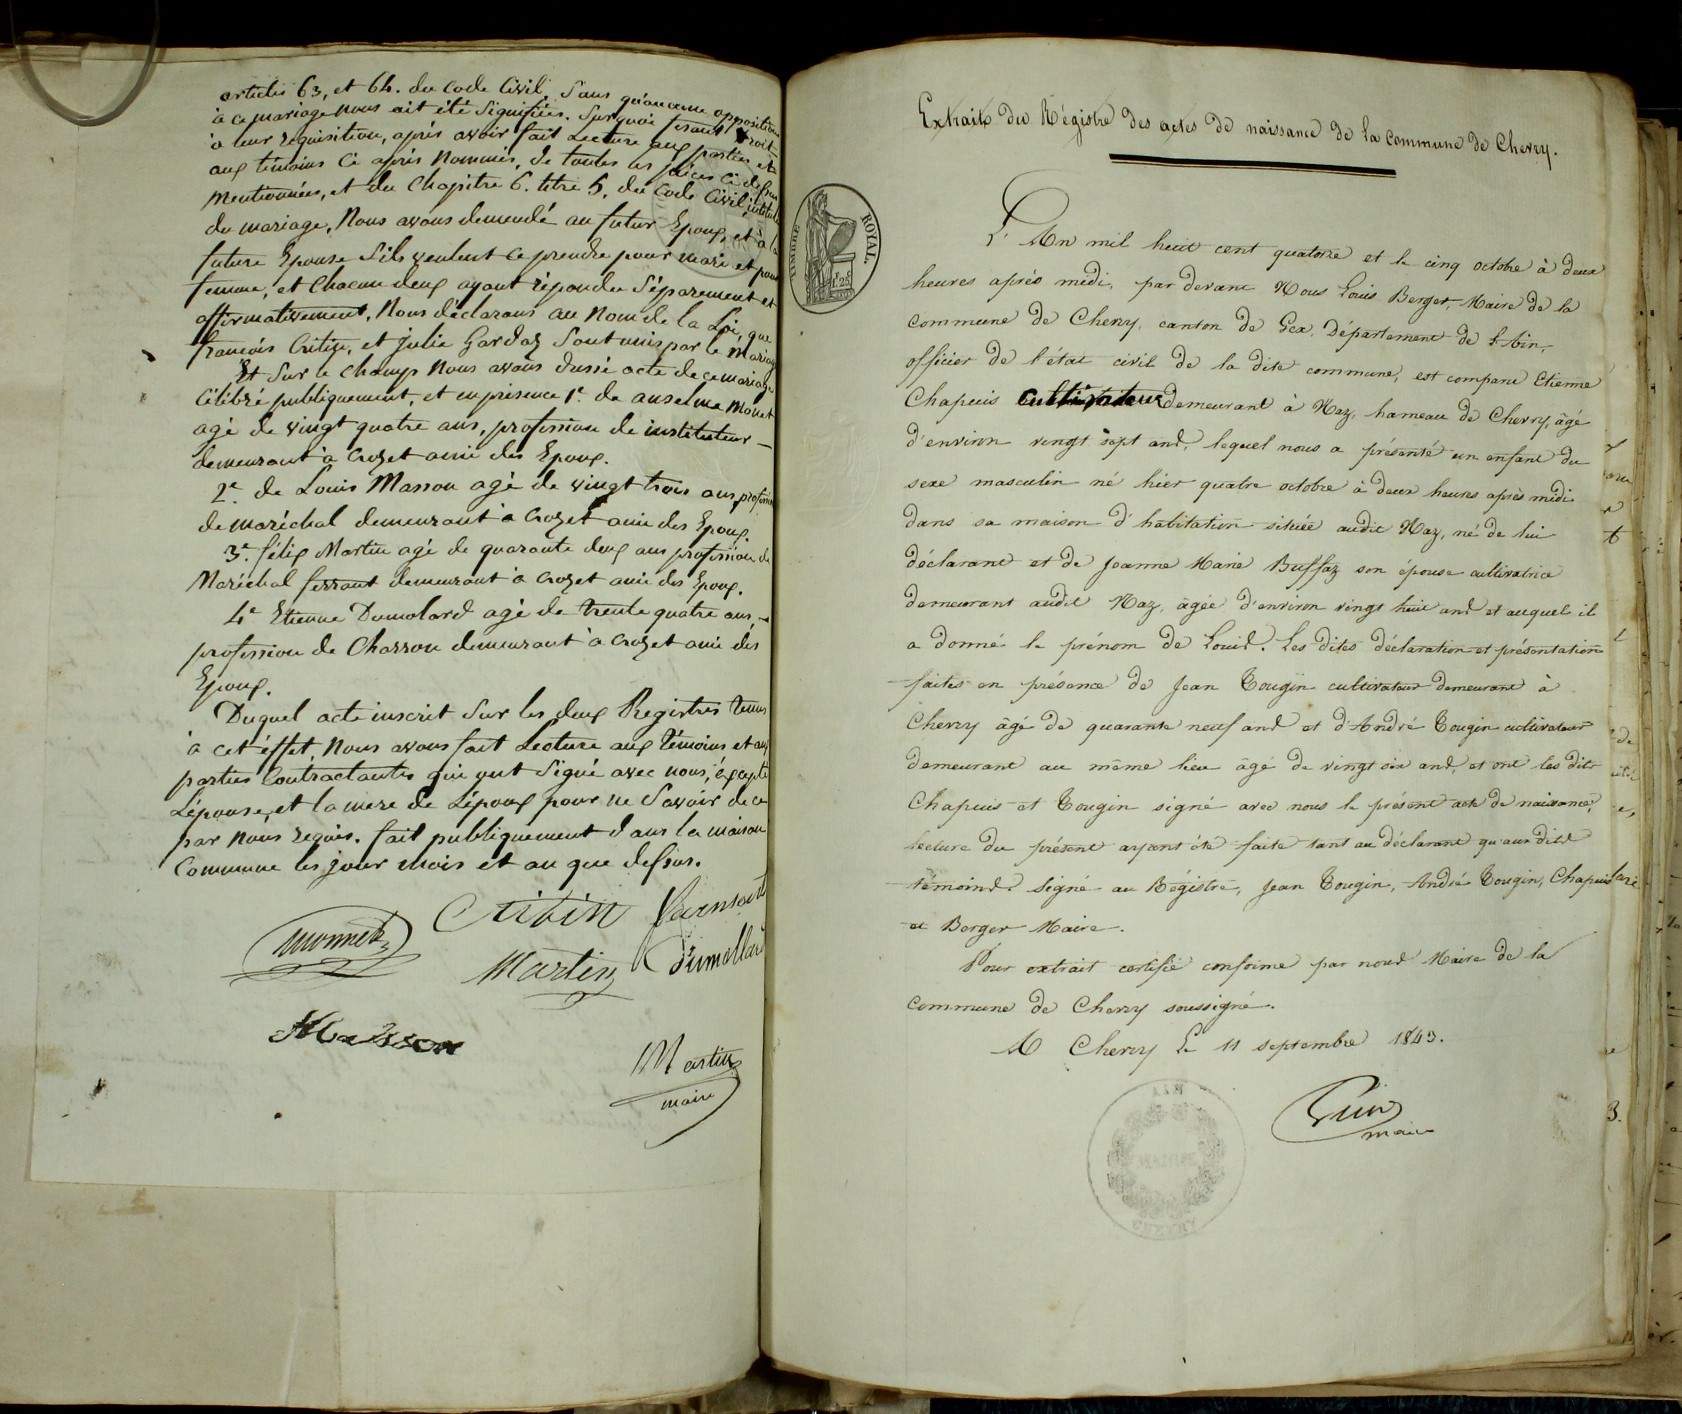 articles 63, et 64. du Code Civil, Sans qu'aucune opposition
à ce mariage nous ait été Signifiée. Sur quoi fesant droit
à leur réquisition, après avoir fait Lecture aux parties et
aux témoins Ci après Nommés, de toutes les pièces Ci dessus
Mentionnées, et du Chapitre 6. titre 5. du Code Civil, intitulé
du mariage, Nous avons demandé au futur Epoux, et à la
future Epouse S'ils veulent Ce prendre pour mari et pour
femme, et Chacun deux ayant répondu Séparement et
affirmativement, Nous déclarons au Nom de la Loi, que
françois Critin, et julie Gardaz Sont unis par le Mariage
Et Sur le Champ Nous avons dressé acte de ce mariage
Célébré publiquement, et en présence 1.e de anselme Monet
agé de vingt quatre ans, profession de instituteur
demeurant à Crozet ami des Epoux.
2.e de Louis Masson agé de vingt trois ans profession
de maréchal demeurant à Crozet ami des Epoux.
3.e félix Martin agé de quarante deux ans profession de
Maréchal ferrant demeurant à Crozet ami des Epoux.
4.e Etienne Dumolard agé de trente quatre ans,
profession de Charron demeurant à Crozet ami des
Epoux.
Duquel acte inscrit Sur les deux Registres tenus
à cet éffet Nous avons fait Lecture aux Témoins et aux
parties Contractantes qui ont Signé avec nous, éxcepté
L'épouse, et la mère de L'époux pour ne Savoir de ce
par Nous requis. fait publiquement dans la maison
Commune les jour mois et an que dessus.
Critin
monnet
Martin Dumollard
Masson
Martin
maire
Extrait du Régistre des actes de naissance de la commune de Chevry.
TIMBRE ROYAL.
L'An mil huit cent quatorze et le cinq octobre à deux
heures après midi, par devant Nous Louis Berger, Maire de la
commune de Chevry, canton de Gex, Département de l'Ain,
officier de l'état civil de la dite commune, est comparu Etienne
Chapuis Cultivateur demeurant à Naz, hameau de Chevry, âgé
d'environ vingt sept ans, lequel nous a présenté un enfant du
sexe masculin né hier quatre octobre à deux heures après midi
dans sa maison d'habitation située audit Naz, né de lui
déclarant et de Jeanne Marie Buffaz son épouse cultivatrice
demeurant audit Naz, âgée d'environ vingt huit ans et auquel il
a donné le prénom de Louis. Les dites déclaration et présentation
faites en présence de Jean Tougin cultivateur demeurant à
Chevry âgé de quarante neuf ans et d'André Tougin cultivateur
demeurant au même lieu âgé de vingt six ans, et ont les dits
Chapuis et Tougin signé avec nous le présent acte de naissance,
lecture du présent ayant été faite tant au déclarant qu'aux dits
témoins. Signé au Régistre, Jean Tougin, André Tougin, Chapuis
et Berger Maire.
Pour extrait certifié conforme par nous Maire de la
commune de Chevry soussigné.
A Chevry le 11 septembre 1843.
maire
CHEVRY